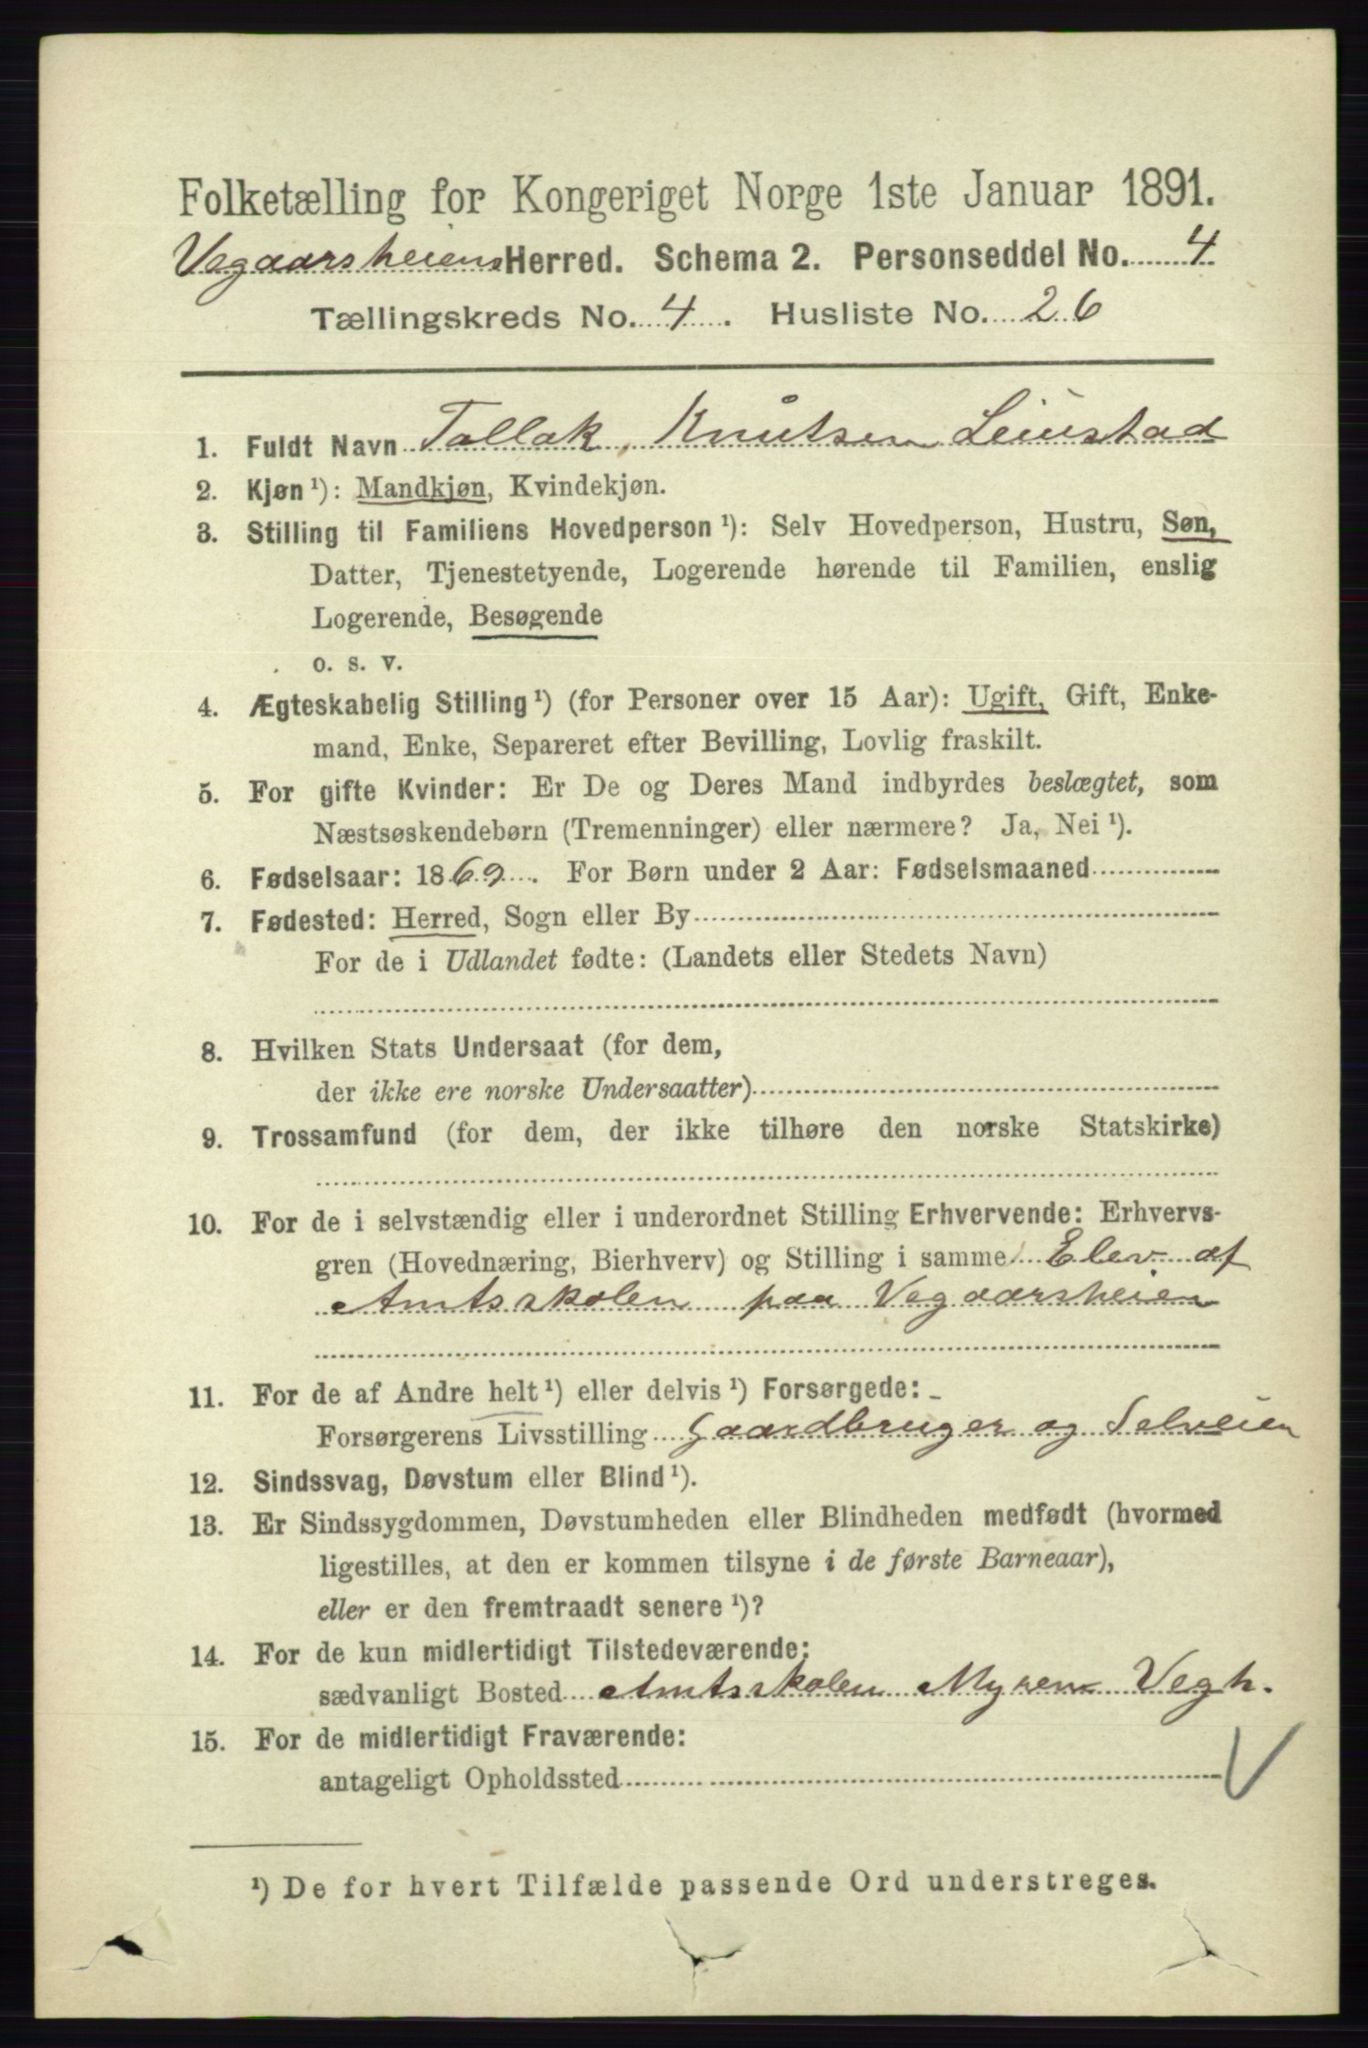 Folketælling for Kongeriget Norge 1ste Januar 1891.
Vegaarsheiens Herred. Schema 2. Personseddel No. 4
Tællingskreds No. 4. Husliste No. 26
1. Fuldt Navn Tallak Knutsen Leiustad
2. Kjøn ¹): Mandkjøn, Kvindekjøn.
3. Stilling til Familiens Hovedperson ¹): Selv Hovedperson, Hustru, Søn,
Datter, Tjenestetyende, Logerende hørende til Familien, enslig
Logerende, Besøgende
o. s. v.
4. Ægteskabelig Stilling ¹) (for Personer over 15 Aar): Ugift, Gift, Enke-
mand, Enke, Separeret efter Bevilling, Lovlig fraskilt.
5. For gifte Kvinder: Er De og Deres Mand indbyrdes beslægtet, som
Næstsøskendebørn (Tremenninger) eller nærmere? Ja, Nei ¹).
6. Fødselsaar: 1869. For Børn under 2 Aar: Fødselsmaaned
7. Fødested: Herred, Sogn eller By
For de i Udlandet fødte: (Landets eller Stedets Navn)
8. Hvilken Stats Undersaat (for dem,
der ikke ere norske Undersaatter)
9. Trossamfund (for dem, der ikke tilhøre den norske Statskirke)
10. For de i selvstændig eller i underordnet Stilling Erhvervende: Erhvervs-
gren (Hovednæring, Bierhverv) og Stilling i samme Elev af
Amtsskolen paa Vegaarsheien
11. For de af Andre helt ¹) eller delvis ¹) Forsørgede:
Forsørgerens Livsstilling Gaardbruger og Selveier
12. Sindssvag, Døvstum eller Blind ¹).
13. Er Sindssygdommen, Døvstumheden eller Blindheden medfødt (hvormed
ligestilles, at den er kommen tilsyne i de første Barneaar),
eller er den fremtraadt senere ¹)?
14. For de kun midlertidigt Tilstedeværende:
sædvanligt Bosted Amtsskolen Myren Vegh.
15. For de midlertidigt Fraværende:
antageligt Opholdssted
¹) De for hvert Tilfælde passende Ord understreges.